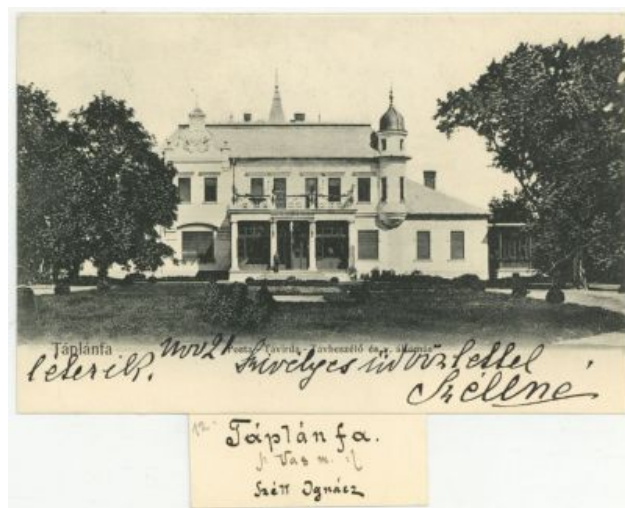 Táplánfa
Posta - Távirda - Távbeszélő és v. állomás
nov 21 Szivélyes üdvözlettel
Széllné
12.
Táplánfa.
Vas m.
Széll Ignácz